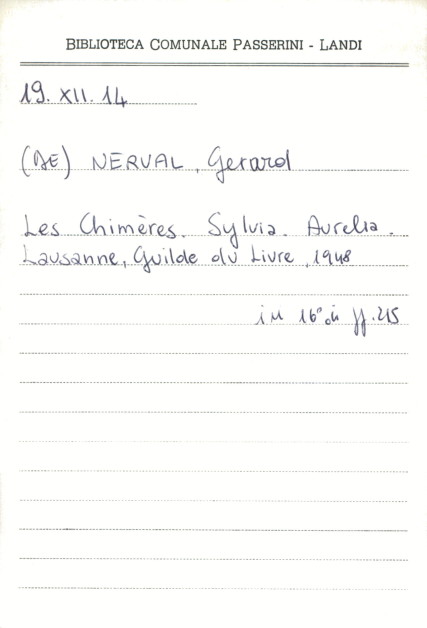 BIBLIOTECA COMUNALE PASSERINI - LANDI
19. XII. 14
(DE) NERVAL, Gerard
Les Chimères. Sylvia. Aurelia.
Lausanne, Guilde du Livre, 1948
in 16° di ff. 215